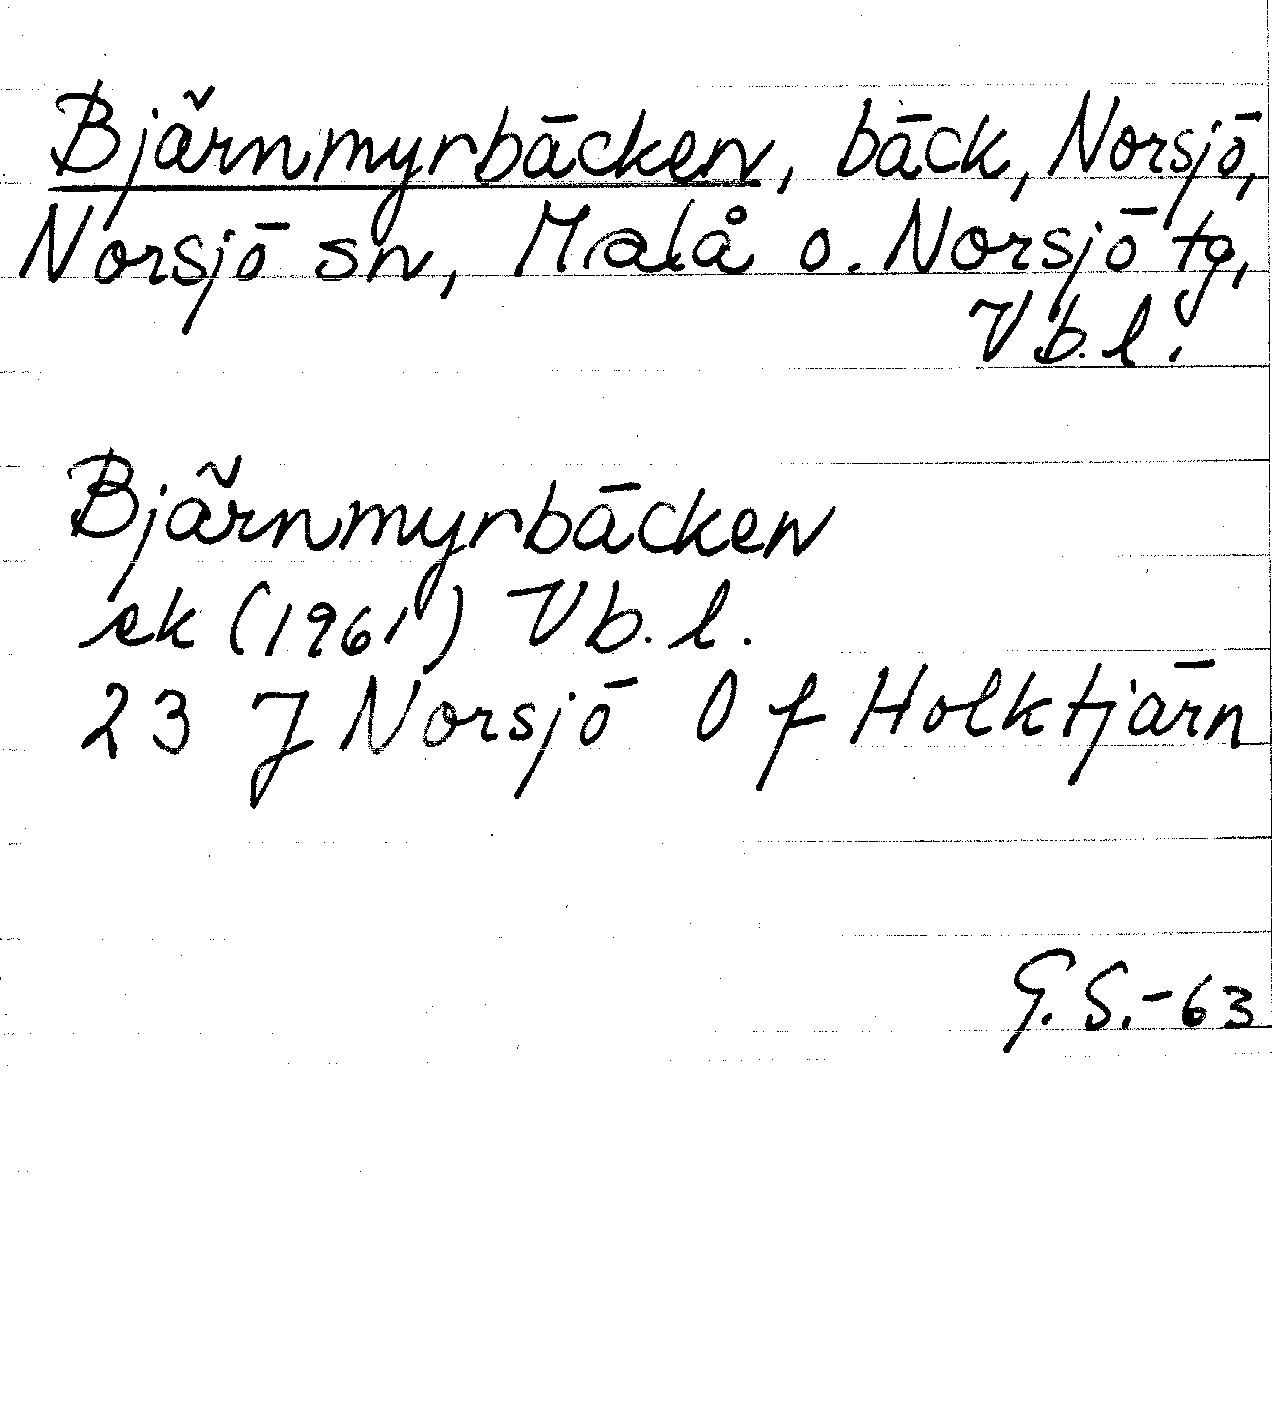 Bjärnmyrbäcken, bäck, Norsjö,
Norsjö sn, Malå o. Norsjö tg,
Vb. l.
Bjärnmyrbäcken
ek (1961) Vb. l.
23 J Norsjö O f Holktjärn
G. S. - 63